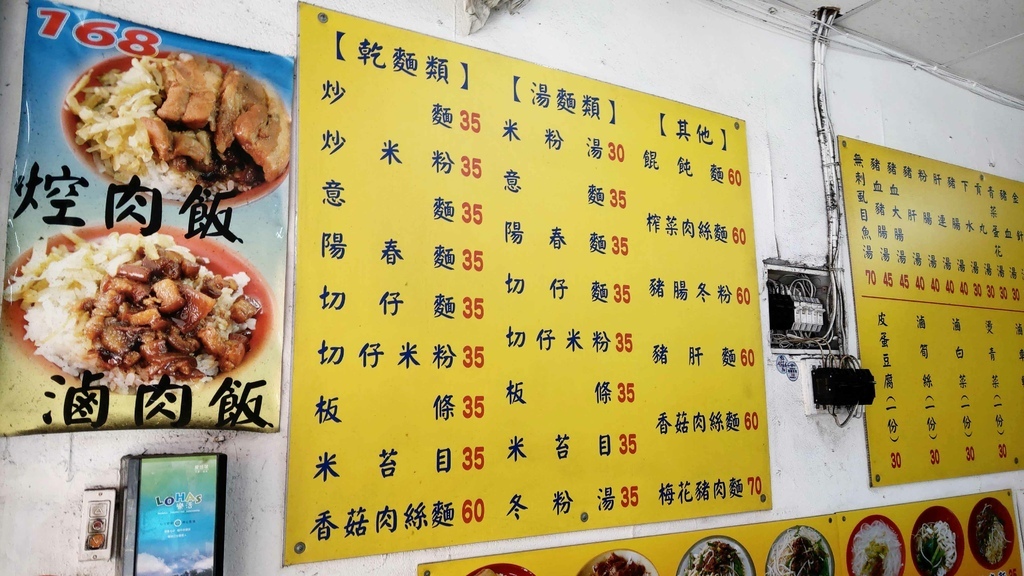 168
焢肉飯
滷肉飯
LOHAS
【乾麵類】
炒麵35
炒米粉35
意麵35
陽春麵35
切仔麵35
切仔米粉35
板條35
米苔目35
香菇肉絲麵60
【湯麵類】
米粉湯30
意麵35
陽春麵35
切仔麵35
切仔米粉35
板條35
米苔目35
冬粉湯35
【其他】
餛飩麵60
榨菜肉絲麵60
豬腸冬粉60
豬肝麵60
香菇肉絲麵60
梅花豬肉麵70
無刺虱目魚湯70
豬血豬腸湯45
豬血大腸湯45
豬肝湯40
粉腸湯40
肝連湯40
豬腸湯40
下水湯30
青菜蛋花湯30
豬血湯30
皮蛋豆腐(一份)30
滷筍絲(一份)30
滷白菜(一份)30
燙青菜(一份)30